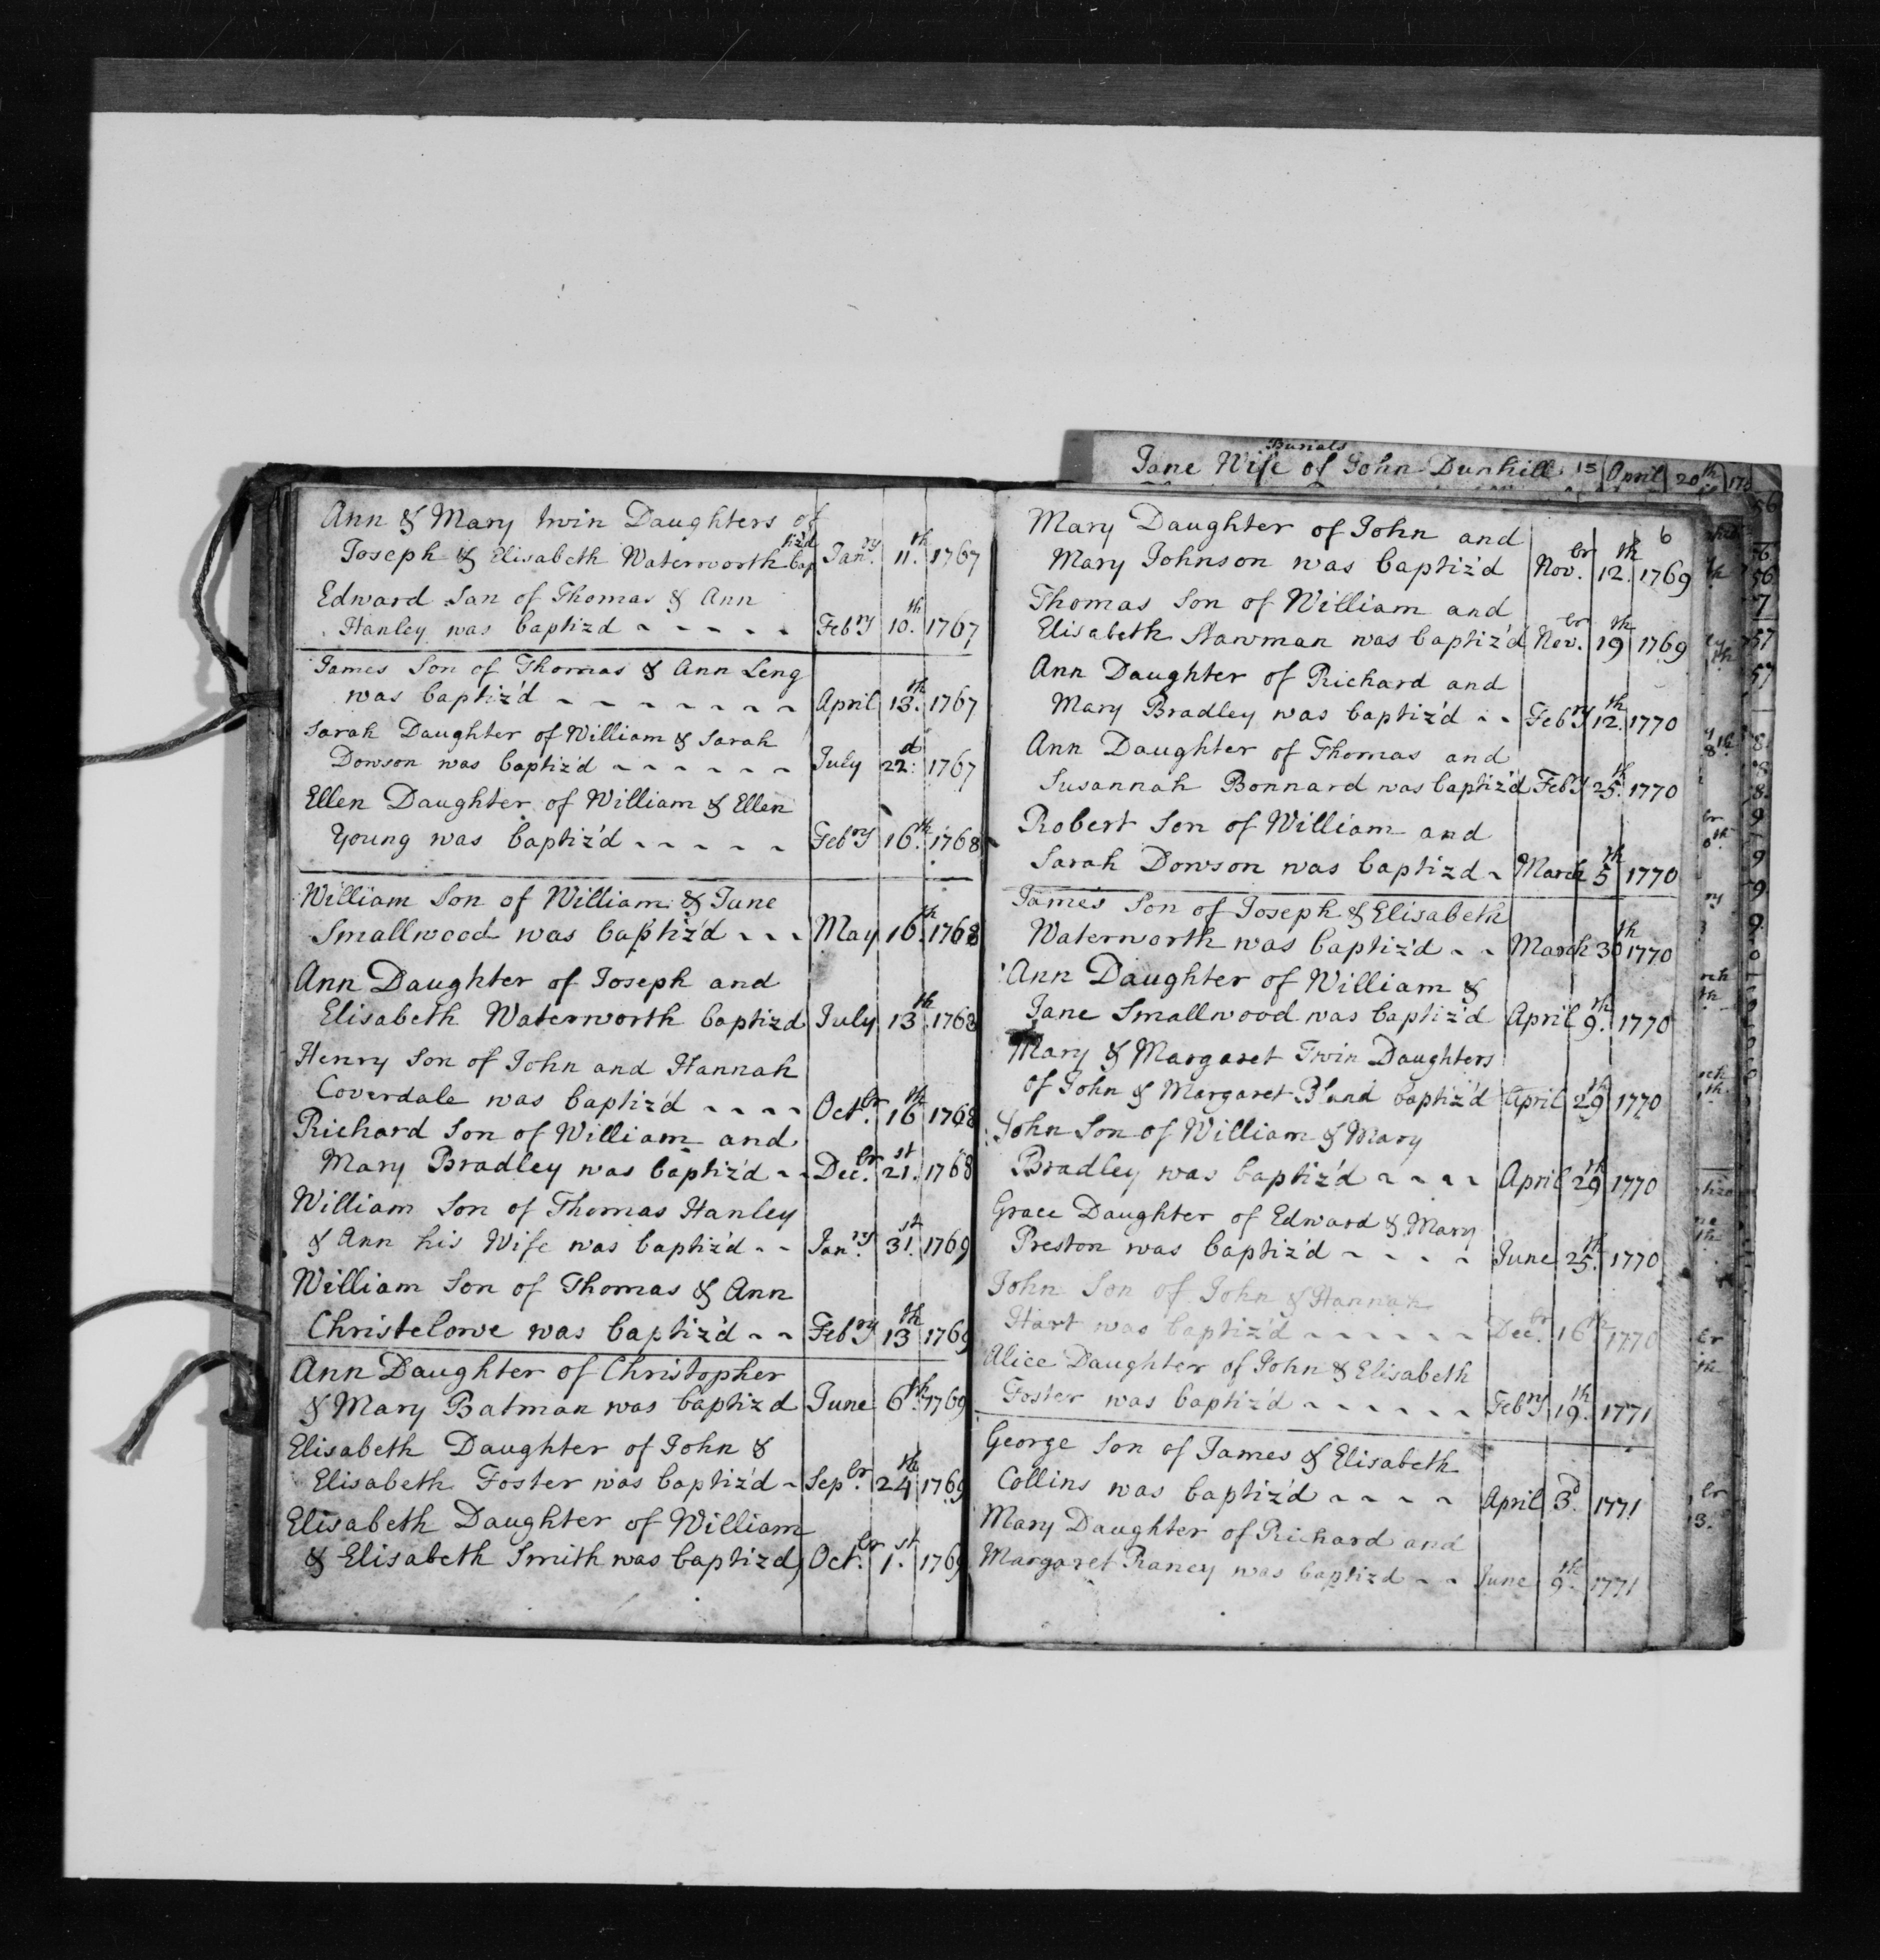 Ann & Mary twin Daughters of
Joseph & Elisabeth Waterworth baptizd Jan.ry 11.th 1767
Edward Son of Thomas & Ann
Hanley was baptizd Febry 10.th 1767
James Son of Thomas & Ann Leng
was baptiz'd April 13.th 1767
Sarah Daughter of William & Sarah
Dowson was baptiz'd July 22.d 1767
Ellen Daughter of William & Ellen
Young was baptiz'd Febry 16.th 1768
William Son of William & Jane
Smallwood was baptiz'd May 16.th 1768
Ann Daughter of Joseph and
Elisabeth Waterworth baptizd July 13.th 1768
Henry Son of John and Hannah
Coverdale was baptiz'd Oct.br 16th 1768
Richard Son of William and
Mary Bradley was baptiz'd Dec.br 21.st 1768
William Son of Thomas Hanley
& Ann his Wife was baptiz'd Jan.ry 31.st 1769
William Son of Thomas & Ann
Christelowe was baptiz'd Febry 13th 1769
Ann Daughter of Christopher
& Mary Batman was baptizd June 6.th 1769
Elisabeth Daughter of John &
Elisabeth Foster was baptiz'd Sep.br 24th 1769
Elisabeth Daughter of William
& Elisabeth Smith was baptizd Oct.br 1.st 1769
Burials
Jane Wife of John Dunhill 15 April 20th
6
Mary Daughter of John and
Mary Johnson was baptiz'd Nov.br 12.th 1769
Thomas Son of William and
Elisabeth Stawman was baptiz'd Nov.br 19th 1769
Ann Daughter of Richard and
Mary Bradley was baptiz'd Febry 12.th 1770
Ann Daughter of Thomas and
Susannah Bonnard was baptiz'd Febry 25.th 1770
Robert Son of William and
Sarah Dowson was baptizd March 5th 1770
James Son of Joseph & Elisabeth
Waterworth was baptiz'd March 30th 1770
Ann Daughter of William &
Jane Smallwood was baptiz'd April 9.th 1770
Mary & Margaret Twin Daughters
of John & Margaret Bland baptiz'd April 29th 1770
John Son of William & Mary
Bradley was baptiz'd April 29th 1770
Grace Daughter of Edward & Mary
Preston was baptiz'd June 25.th 1770
John Son of John & Hannah
Hart was baptiz'd Dec.br 16th 1770
Alice Daughter of John & Elisabeth
Foster was baptiz'd Febry 19.th 1771
George Son of James & Elisabeth
Collins was baptiz'd April 3.d 1771
Mary Daughter of Richard and
Margaret Raney was baptizd June 9.th 1771